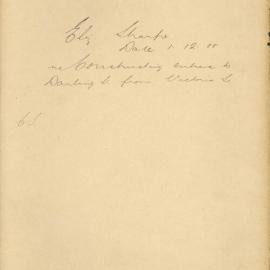 Ely Sharpe
Date 1.12.11
re Constructing entrance to
Darling St from Victoria St